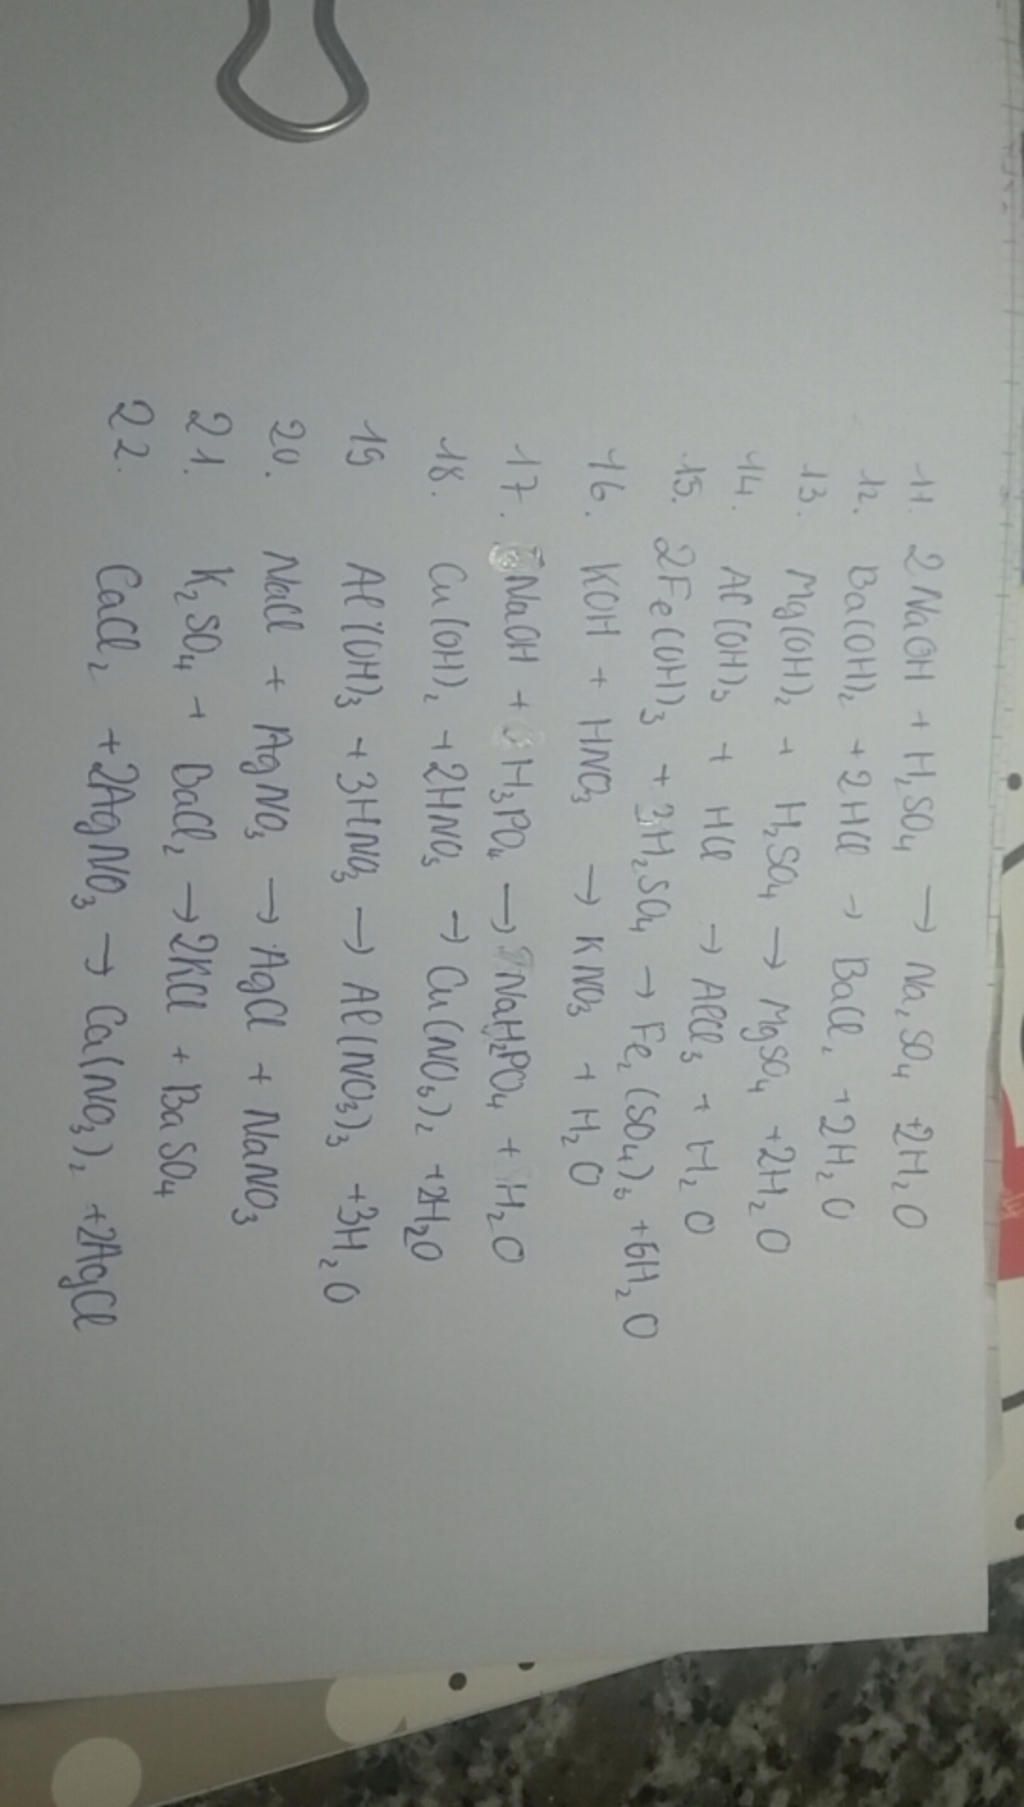 11. 2NaOH + H₂SO₄ → Na₂SO₄ + 2H₂O
12. Ba(OH)₂ + 2HCl → BaCl₂ + 2H₂O
13. Mg(OH)₂ + H₂SO₄ → MgSO₄ + 2H₂O
14. Al(OH)₃ + HCl → AlCl₃ + H₂O
15. 2Fe(OH)₃ + 3H₂SO₄ → Fe₂(SO₄)₃ + 6H₂O
16. KOH + HNO₃ → KNO₃ + H₂O
17. NaOH + H₃PO₄ → NaH₂PO₄ + H₂O
18. Cu(OH)₂ + 2HNO₃ → Cu(NO₃)₂ + 2H₂O
19 Al(OH)₃ + 3HNO₃ → Al(NO₃)₃ + 3H₂O
20. NaCl + AgNO₃ → AgCl + NaNO₃
21. K₂SO₄ + BaCl₂ → 2KCl + BaSO₄
22. CaCl₂ + 2AgNO₃ → Ca(NO₃)₂ + 2AgCl